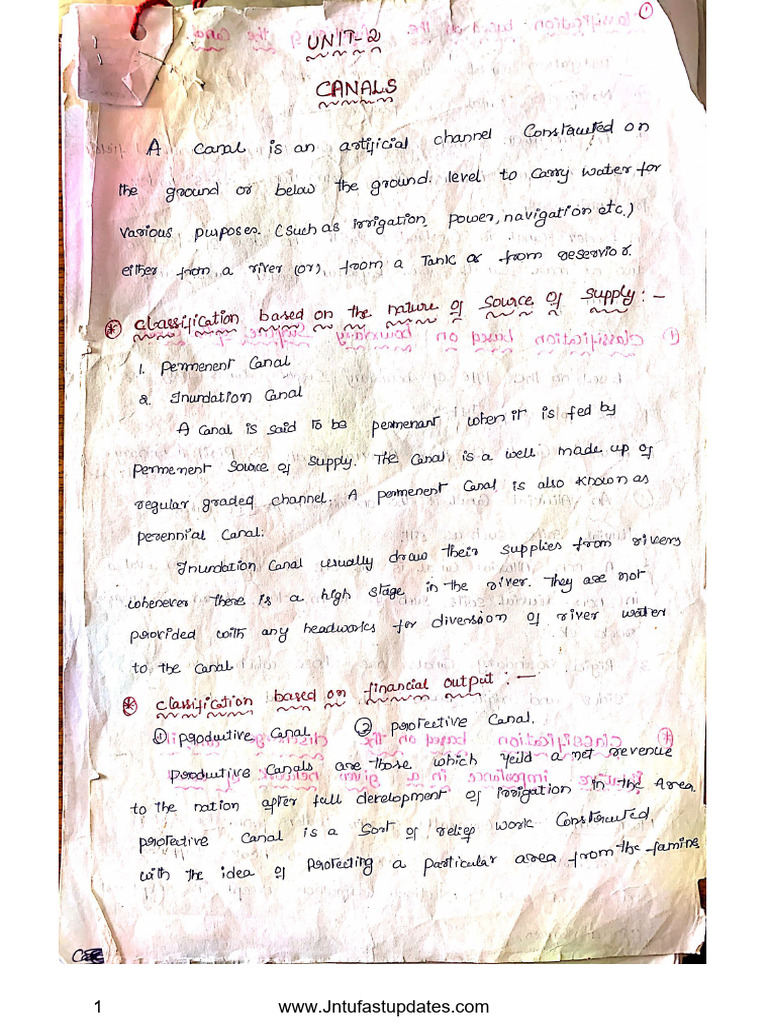 ①
UNIT-2
CANALS
A canal is an artificial channel Constructed on
the ground or below the ground level to Carry water for
various purposes. (such as irrigation, power, navigation etc.)
either from a river (or), from a Tank or from reservior.
* classification based on the nature of source of supply: -
1. permenent Canal
2. Inundation Canal
A Canal is said to be permenant when it is fed by
permenent source of supply. The Canal is a well made up of
regular graded channel. A permenent Canal is also Known as
perennial Canal.
Inundation Canal usually draw their supplies from rivers
whenever there is a high stage in the river. They are not
provided with any headworks for diversion of river water
to the canal
* classification based on financial output : -
① productive Canal ② protective Canal.
productive Canals are those which yeild a net revenue
to the nation after full development of irrigation in the Area
protective Canal is a Sort of relief work Constructed,
with the idea of protecting a particular area from the famine
1 www.Jntufastupdates.com